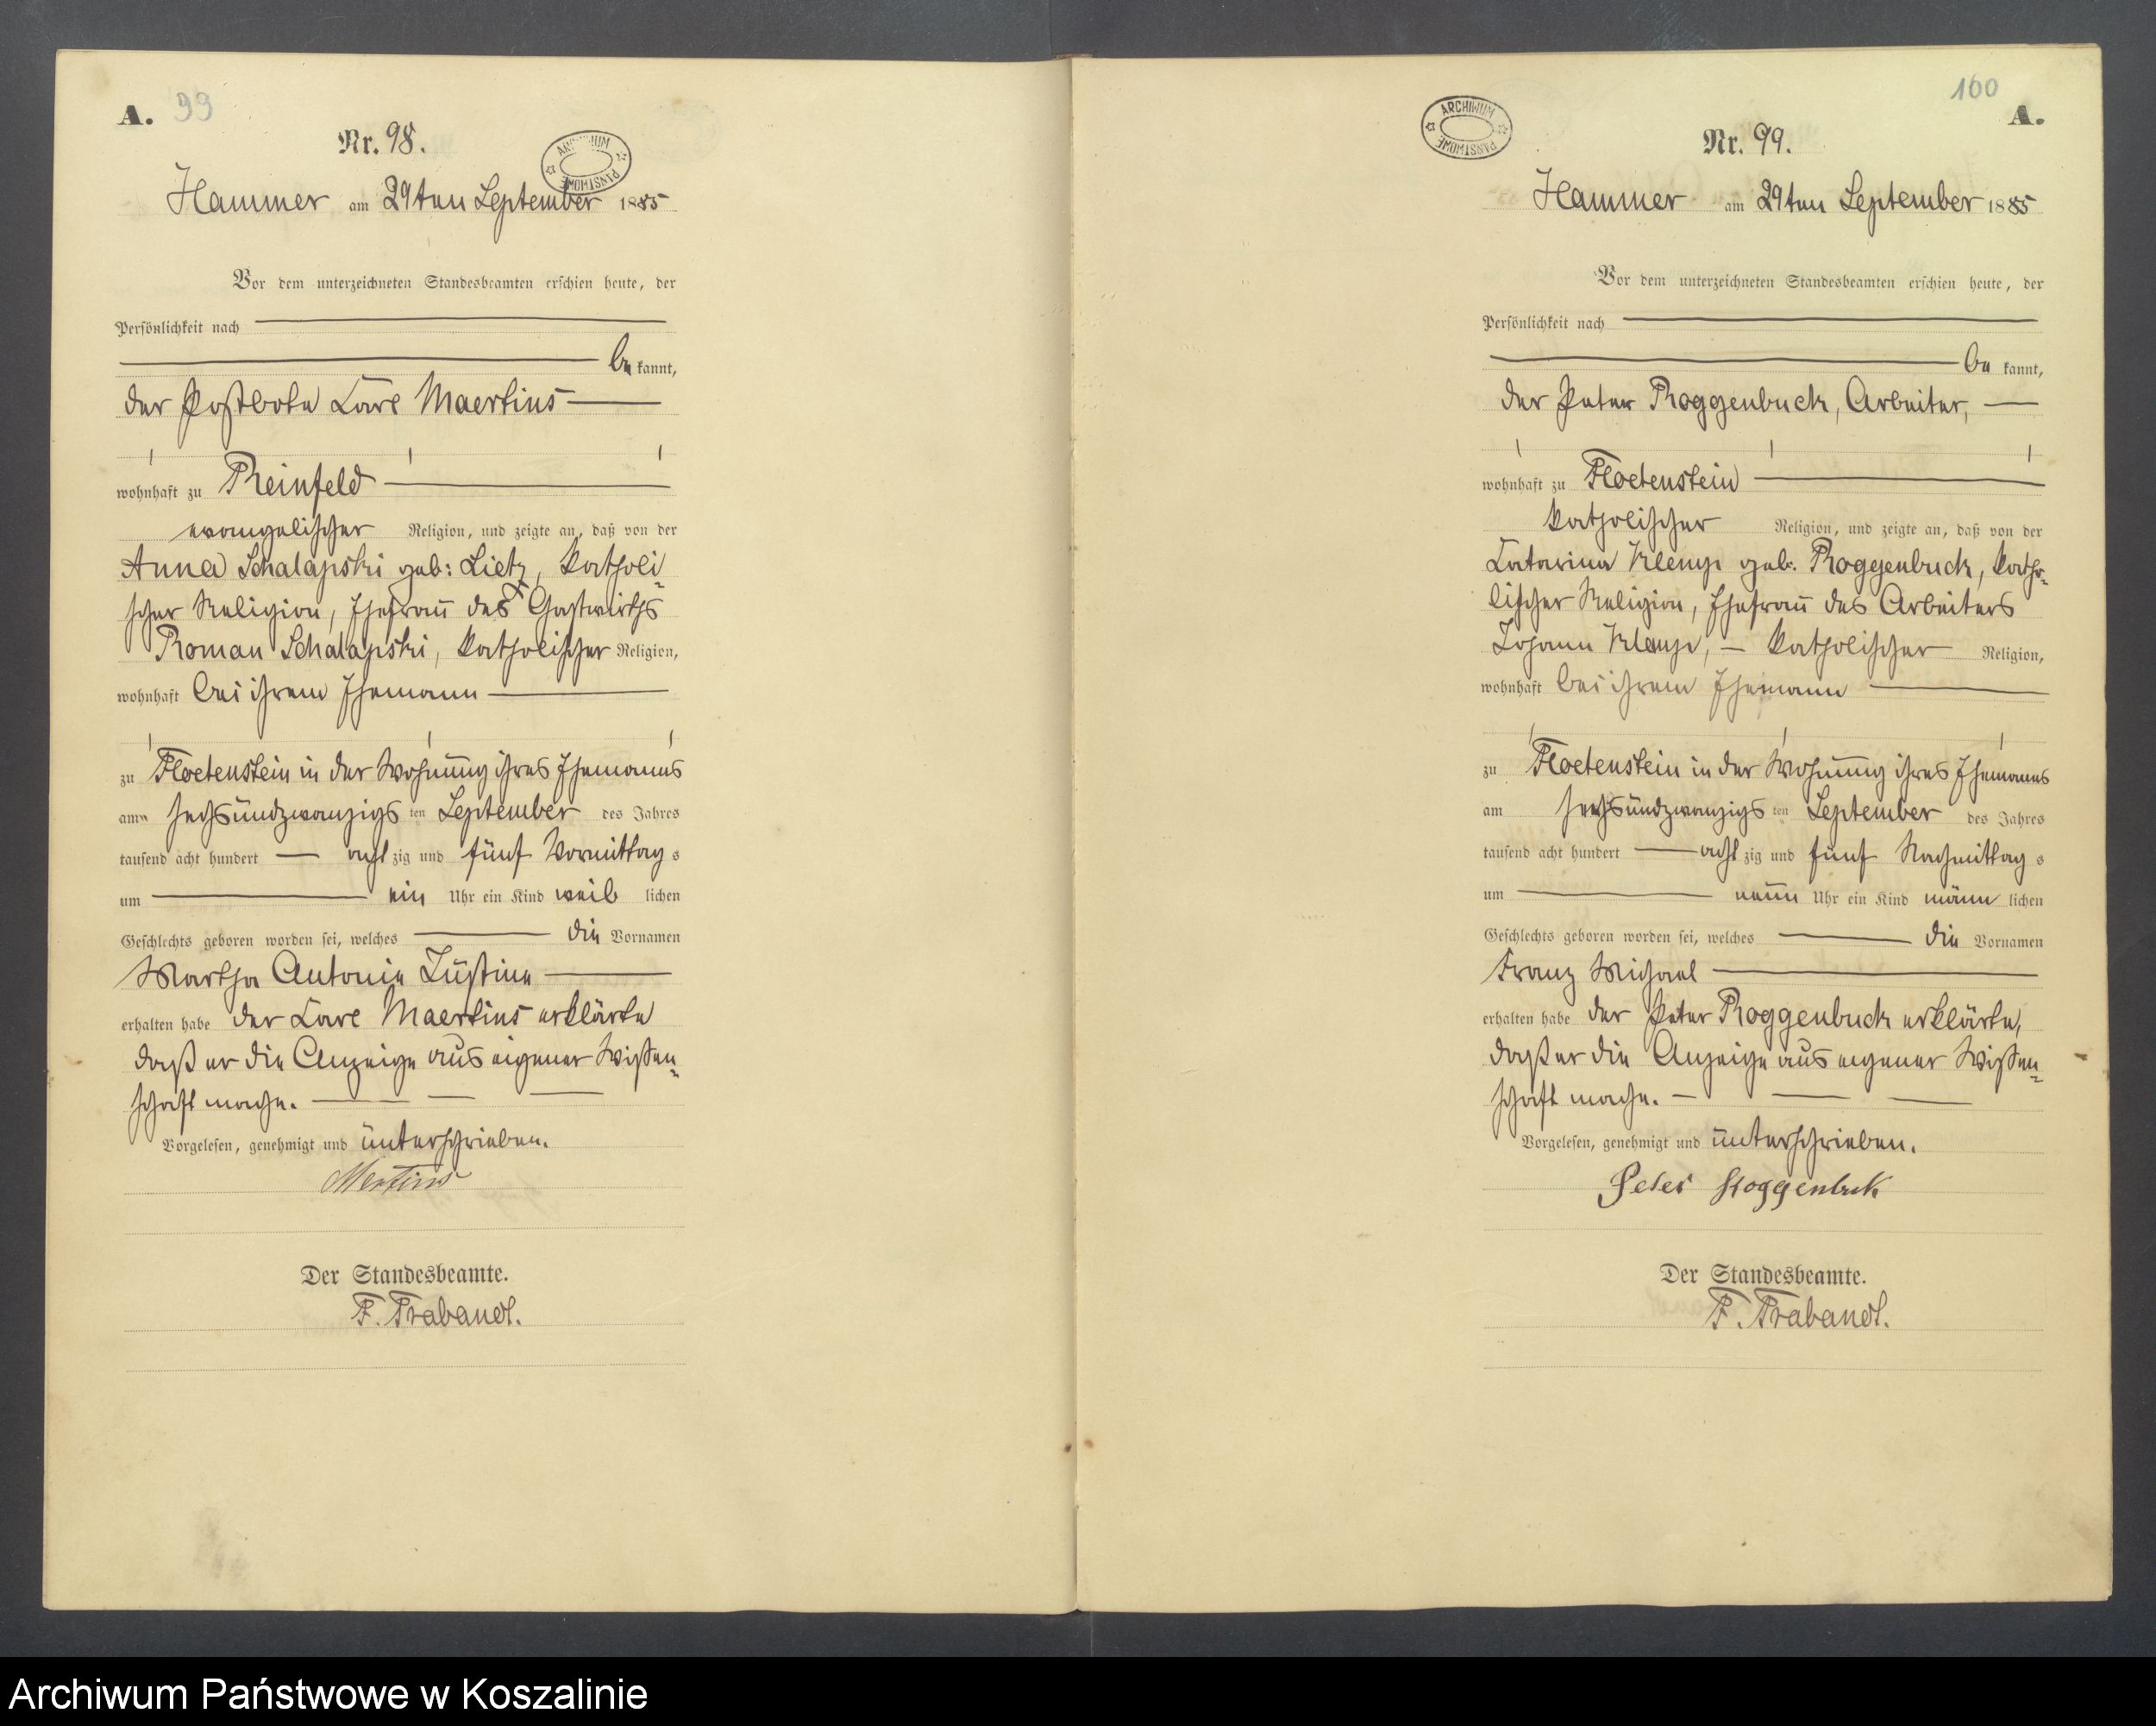 A. 99
Nr. 98.
ARCHIWUM PAŃSTWOWE
Hammer am 29ten September 1885
Vor dem unterzeichneten Standesbeamten erschien heute, der
Persönlichkeit nach
be kannt,
der Postbote Carl Maertins
wohnhaft zu Reinfeld
evangelischer Religion, und zeigte an, daß von der
Anna Schalapski geb: Lietz, katholi-
scher Religion, Ehefrau des Gastwirths
Roman Schalapski, katholischer Religion,
wohnhaft bei ihrem Ehemann
zu Floetenstein in der Wohnung ihres Ehemanns
am sechsundzwanzigs ten September des Jahres
tausend acht hundert acht zig und fünf Vormittag s
um ein Uhr ein Kind weib lichen
Geschlechts geboren worden sei, welches die Vornamen
Martha Antonie Justine
erhalten habe der Carl Maertins erklärte
daß er die Anzeige aus eigener Wissen-
schaft mache.
Vorgelesen, genehmigt und unterschrieben.
Mertins
Der Standesbeamte.
F. Trabandt.
100
A.
ARCHIWUM PAŃSTWOWE
Nr. 99.
Hammer am 29ten September 1885
Vor dem unterzeichneten Standesbeamten erschien heute, der
Persönlichkeit nach
be kannt,
der Peter Roggenbuck, Arbeiter,
wohnhaft zu Floetenstein
katholischer Religion, und zeigte an, daß von der
Catarina Klemp geb. Roggenbuck, katho-
lischer Religion, Ehefrau des Arbeiters
Johann Klemp, katholischer Religion,
wohnhaft bei ihrem Ehemann
zu Floetenstein in der Wohnung ihres Ehemanns
am sechsundzwanzigs ten September des Jahres
tausend acht hundert acht zig und fünf Nachmittag s
um neun Uhr ein Kind männ lichen
Geschlechts geboren worden sei, welches die Vornamen
Franz Michael
erhalten habe der Peter Roggenbuck erklärte,
daß er die Anzeige aus eigener Wissen-
schaft mache.
Vorgelesen, genehmigt und unterschrieben.
Peter Roggenbuk
Der Standesbeamte.
F. Trabandt.
Archiwum Państwowe w Koszalinie